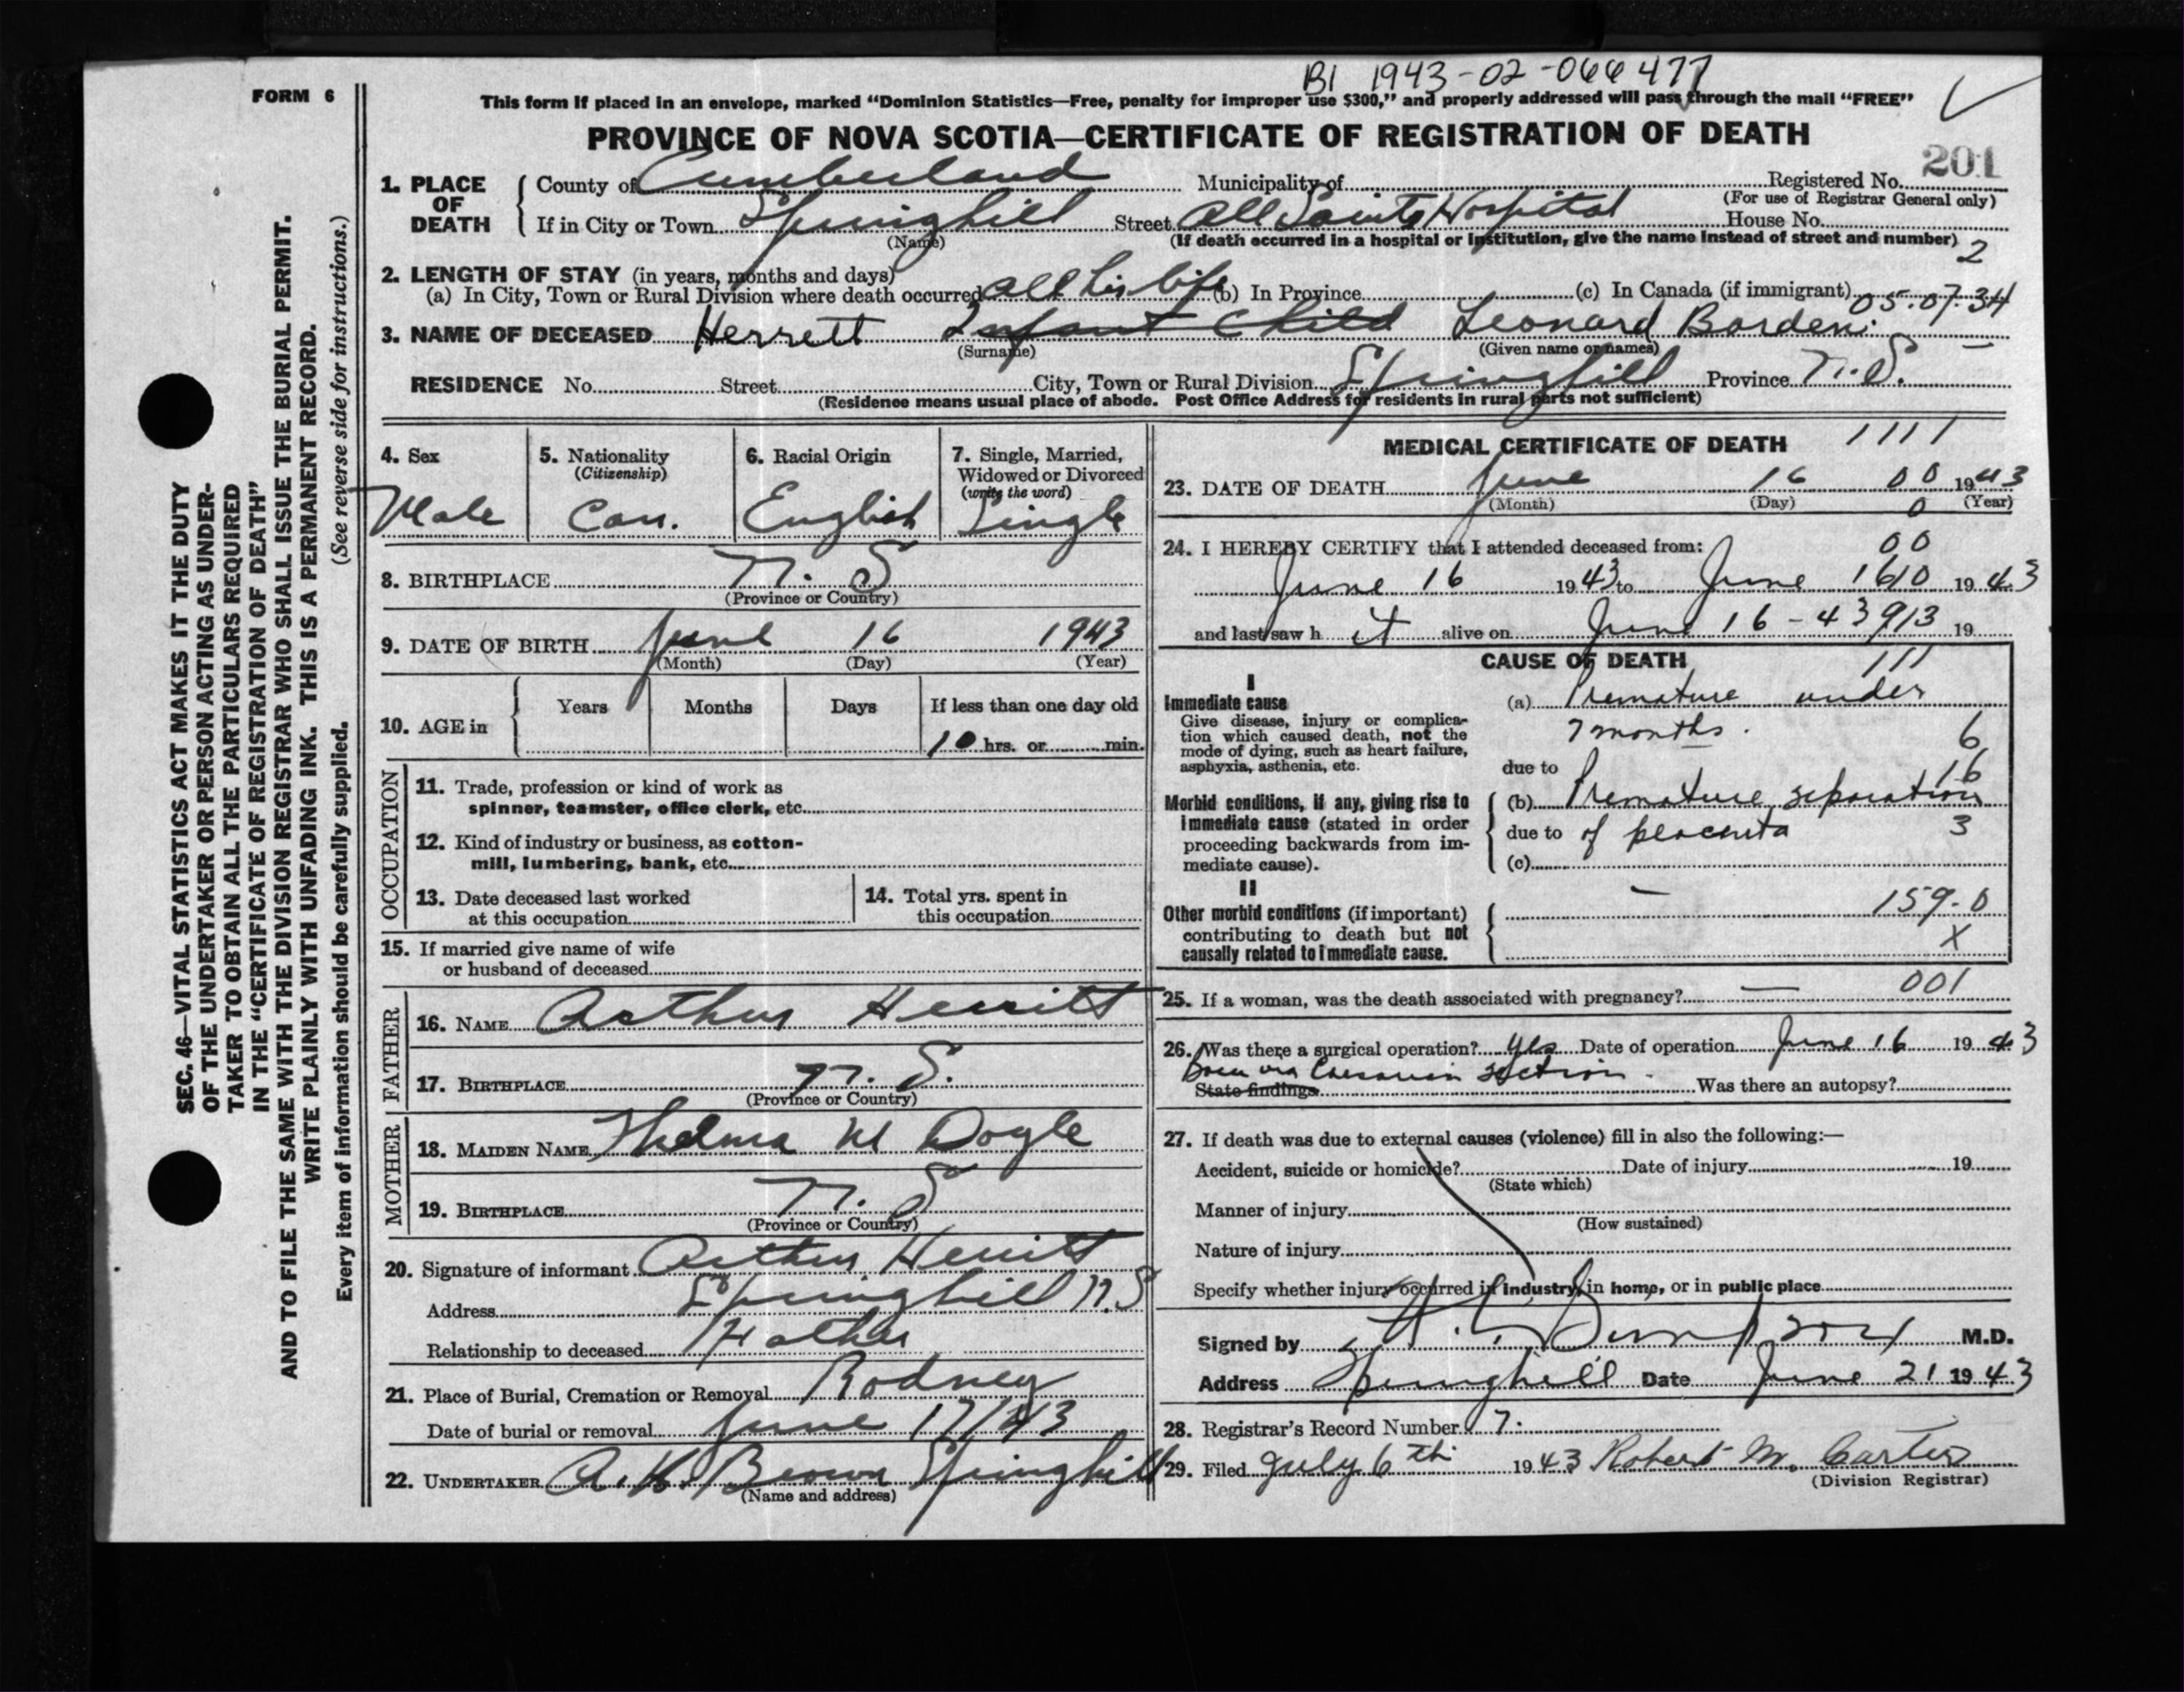 BI 1943-02-066477
FORM 6
This form if placed in an envelope, marked "Dominion Statistics—Free, penalty for improper use $300," and properly addressed will pass through the mail "FREE"
PROVINCE OF NOVA SCOTIA—CERTIFICATE OF REGISTRATION OF DEATH
201
1. PLACE OF DEATH County of Cumberland Municipality of Registered No.
(For use of Registrar General only)
If in City or Town Springhill Street All Saints Hospital House No.
(Name) (If death occurred in a hospital or institution, give the name instead of street and number) 2
2. LENGTH OF STAY (in years, months and days)
(a) In City, Town or Rural Division where death occurred all his life (b) In Province (c) In Canada (if immigrant) 05.07.34
3. NAME OF DECEASED Herrett Infant Child Leonard Borden
(Surname) (Given name or names)
RESIDENCE No. Street City, Town or Rural Division Springhill Province N.S.
(Residence means usual place of abode. Post Office Address for residents in rural parts not sufficient)
4. Sex 5. Nationality (Citizenship) 6. Racial Origin 7. Single, Married, Widowed or Divorced (write the word)
Male Can. English Single
8. BIRTHPLACE N. S
(Province or Country)
9. DATE OF BIRTH June 16 1943
(Month) (Day) (Year)
10. AGE in Years Months Days If less than one day old
10 hrs. or min.
OCCUPATION
11. Trade, profession or kind of work as
spinner, teamster, office clerk, etc.
12. Kind of industry or business, as cotton-
mill, lumbering, bank, etc.
13. Date deceased last worked
at this occupation
14. Total yrs. spent in
this occupation
15. If married give name of wife
or husband of deceased
FATHER
16. NAME Arthur Herritt
17. BIRTHPLACE N. S.
(Province or Country)
MOTHER
18. MAIDEN NAME Thelma M Doyle
19. BIRTHPLACE N. S
(Province or Country)
20. Signature of informant Arthur Herritt
Address Springhill N.S
Relationship to deceased Father
21. Place of Burial, Cremation or Removal Rodney
Date of burial or removal June 17/43
22. UNDERTAKER A. K. Brown Springhill
(Name and address)
MEDICAL CERTIFICATE OF DEATH 1111
23. DATE OF DEATH June 16 00 1943
(Month) (Day) 0 (Year)
24. I HEREBY CERTIFY that I attended deceased from: 00
June 16 1943 to June 16 10 1943
and last saw h it alive on June 16 - 43 913 19
CAUSE OF DEATH 111
I
Immediate cause
Give disease, injury or complica-
tion which caused death, not the
mode of dying, such as heart failure,
asphyxia, asthenia, etc.
(a) Premature under
7 months. 6
due to 16
Morbid conditions, if any, giving rise to
immediate cause (stated in order
proceeding backwards from im-
mediate cause).
(b) Premature separation
due to of placenta 3
(c)
II
Other morbid conditions (if important)
contributing to death but not
causally related to immediate cause.
— 159-0
X
25. If a woman, was the death associated with pregnancy? — 001
26. Was there a surgical operation? yes Date of operation June 16 1943
Born via Caesarian section.
State findings Was there an autopsy?
27. If death was due to external causes (violence) fill in also the following:—
Accident, suicide or homicide? Date of injury 19
(State which)
Manner of injury
(How sustained)
Nature of injury
Specify whether injury occurred in industry, in home, or in public place
Signed by M.D.
Address Springhill Date June 21 1943
28. Registrar's Record Number 7.
29. Filed July 6th 1943 Robert M. Carter
(Division Registrar)
SEC. 46—VITAL STATISTICS ACT MAKES IT THE DUTY
OF THE UNDERTAKER OR PERSON ACTING AS UNDER-
TAKER TO OBTAIN ALL THE PARTICULARS REQUIRED
IN THE "CERTIFICATE OF REGISTRATION OF DEATH"
AND TO FILE THE SAME WITH THE DIVISION REGISTRAR WHO SHALL ISSUE THE BURIAL PERMIT.
WRITE PLAINLY WITH UNFADING INK. THIS IS A PERMANENT RECORD.
Every item of information should be carefully supplied. (See reverse side for instructions.)